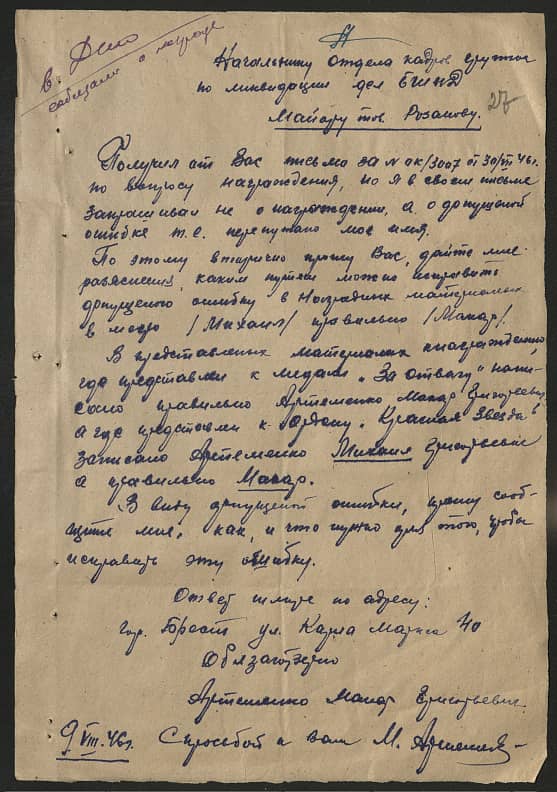 в Дело
сообщали о награде
Начальнику отдела кадров группы
по ликвидации дел БШПД
27
Майору тов. Розанову.
Получил от Вас письмо за N ок/3007 от 30/VII 46 г.
по вопросу награждения, но я в своем письме
запрашивал не о награждении, а о допущеной
ошибке т.е. перепутано мое имя.
По этому вторично прошу Вас, дайте мне
разяснения, каким путем можно исправить
допущеного ошибку в Наградных материалах
в место /Михаил/ правильно /Макар/.
В представленых материалах к награждению,
где представлен к медали „За отвагу" напи-
сано правильно Артеменко Макар Григорьевич,
а где представлен к ордену „Красная Звезда"
записано Артеменко Михаил Григорьевич
а правильно Макар.
В виду допущеной ошибки, прошу сооб-
щите мне, как, и что нужно для этого, чтобы
исправить эту ошибку.
Ответ шлите по адресу:
гор. Брест ул. Карла Маркса 40
Облзагозерно
Артеменко Макар Григорьевич.
9 VIII. 46 г. С просьбой к Вам М. Артеменко